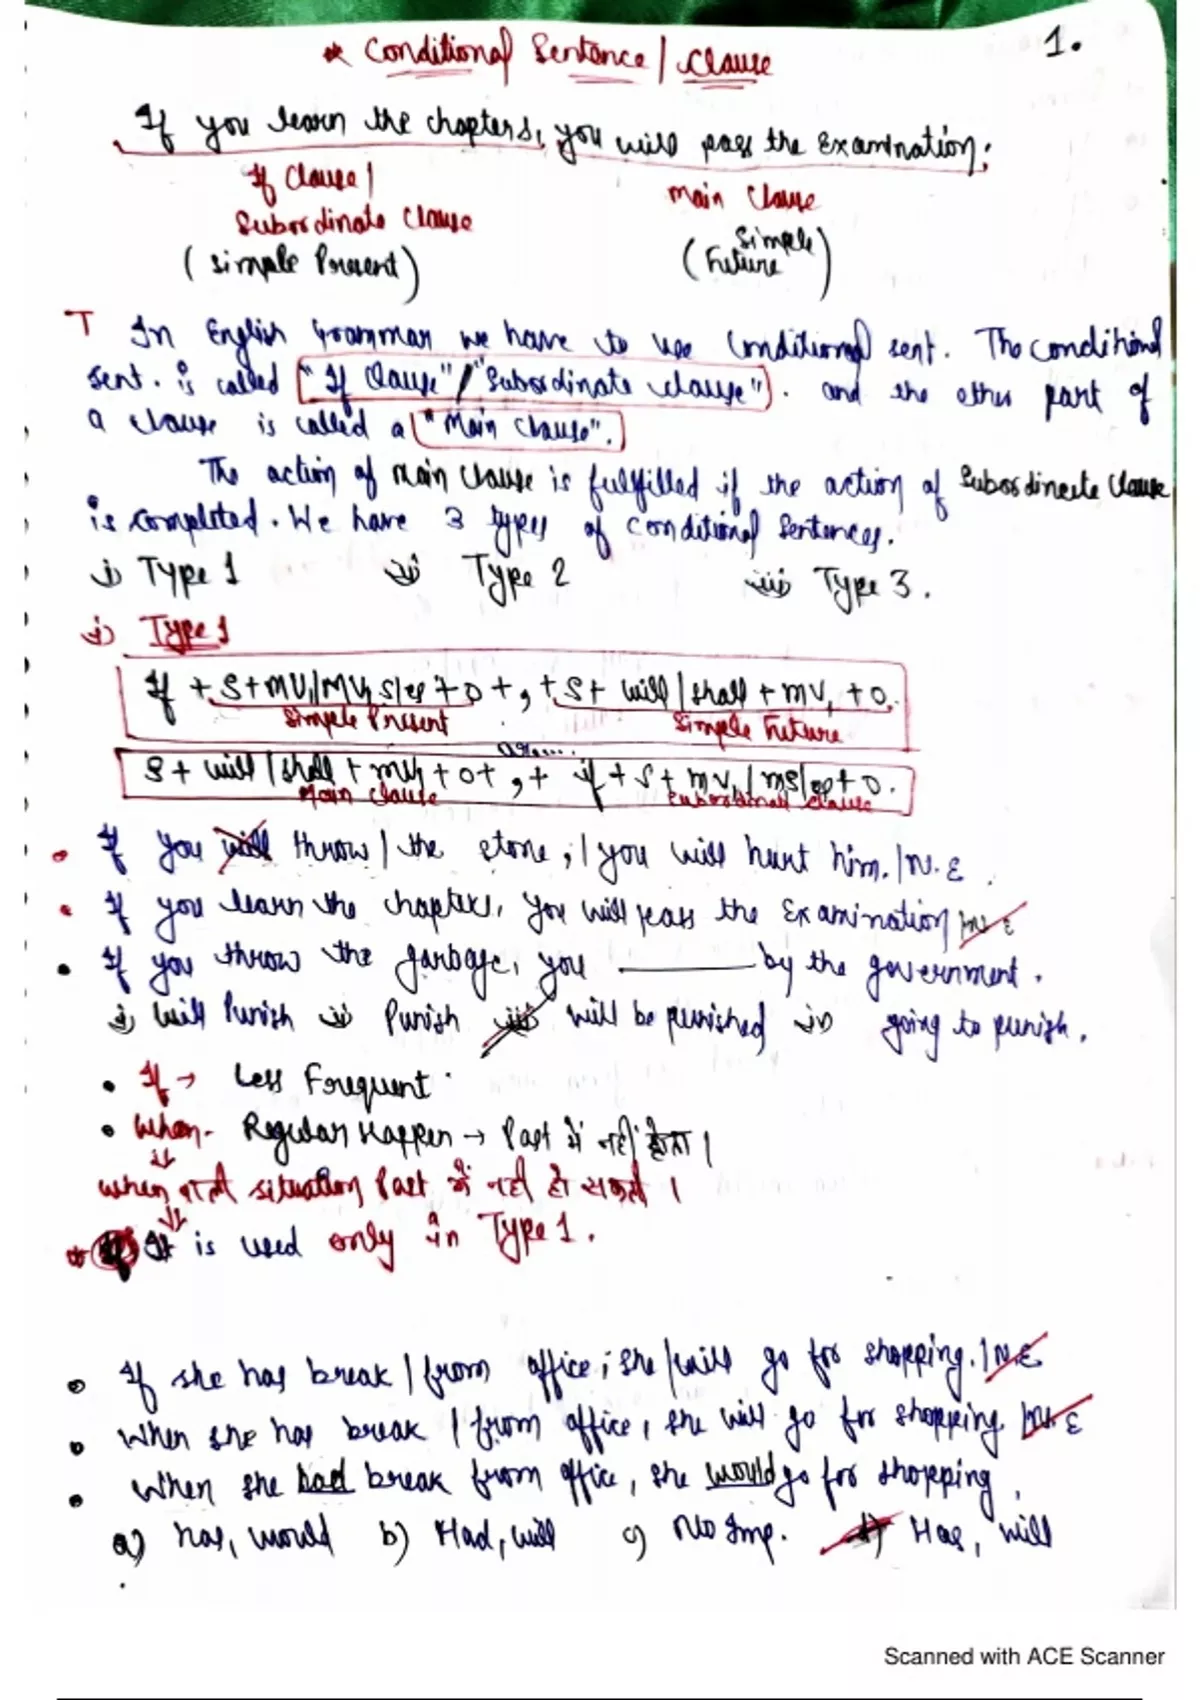 * Conditional Sentence / Clause
1.
If you learn the chapters, you will pass the Examination.
If Clause / Main Clause
Subordinate Clause
(simple Present) (Simple Future)
T In English Grammar we have to use Conditional sent. The conditional
sent. is called "If Clause" / "Subordinate clause". and the other part of
a clause is called a "Main Clause".
The action of Main Clause is fulfilled if the action of Subordinate Clause
is completed. We have 3 types of Conditional Sentences.
i) Type 1 ii) Type 2 iii) Type 3.
i) Type 1
If + S + MV1/MV1 s/es + O + , + S + will / shall + MV1 + O.
Simple Present Simple Future
S + will / shall + MV1 + O + , + if + S + MV1 / s/es + O.
Main Clause Subordinate Clause
• If you will throw / the stone, / you will hurt him. / N.E.
• If you learn the chapters, you will pass the Examination / N.E
• If you throw the garbage, you ______ by the government.
i) Will Punish ii) Punish iii) will be punished iv) going to punish.
• If → Less Frequent
• When - Regular Happen → Past में नहीं होता।
when वाली situation Past में नहीं हो सकती।
* It is used only in Type 1.
• If she has break / from office, she / will go for shopping. / N.E
• When she has break / from office, she will go for shopping / N.E
• When she had break from office, she would go for shopping.
a) has, would b) Had, will c) No Imp. d) Has, will
Scanned with ACE Scanner